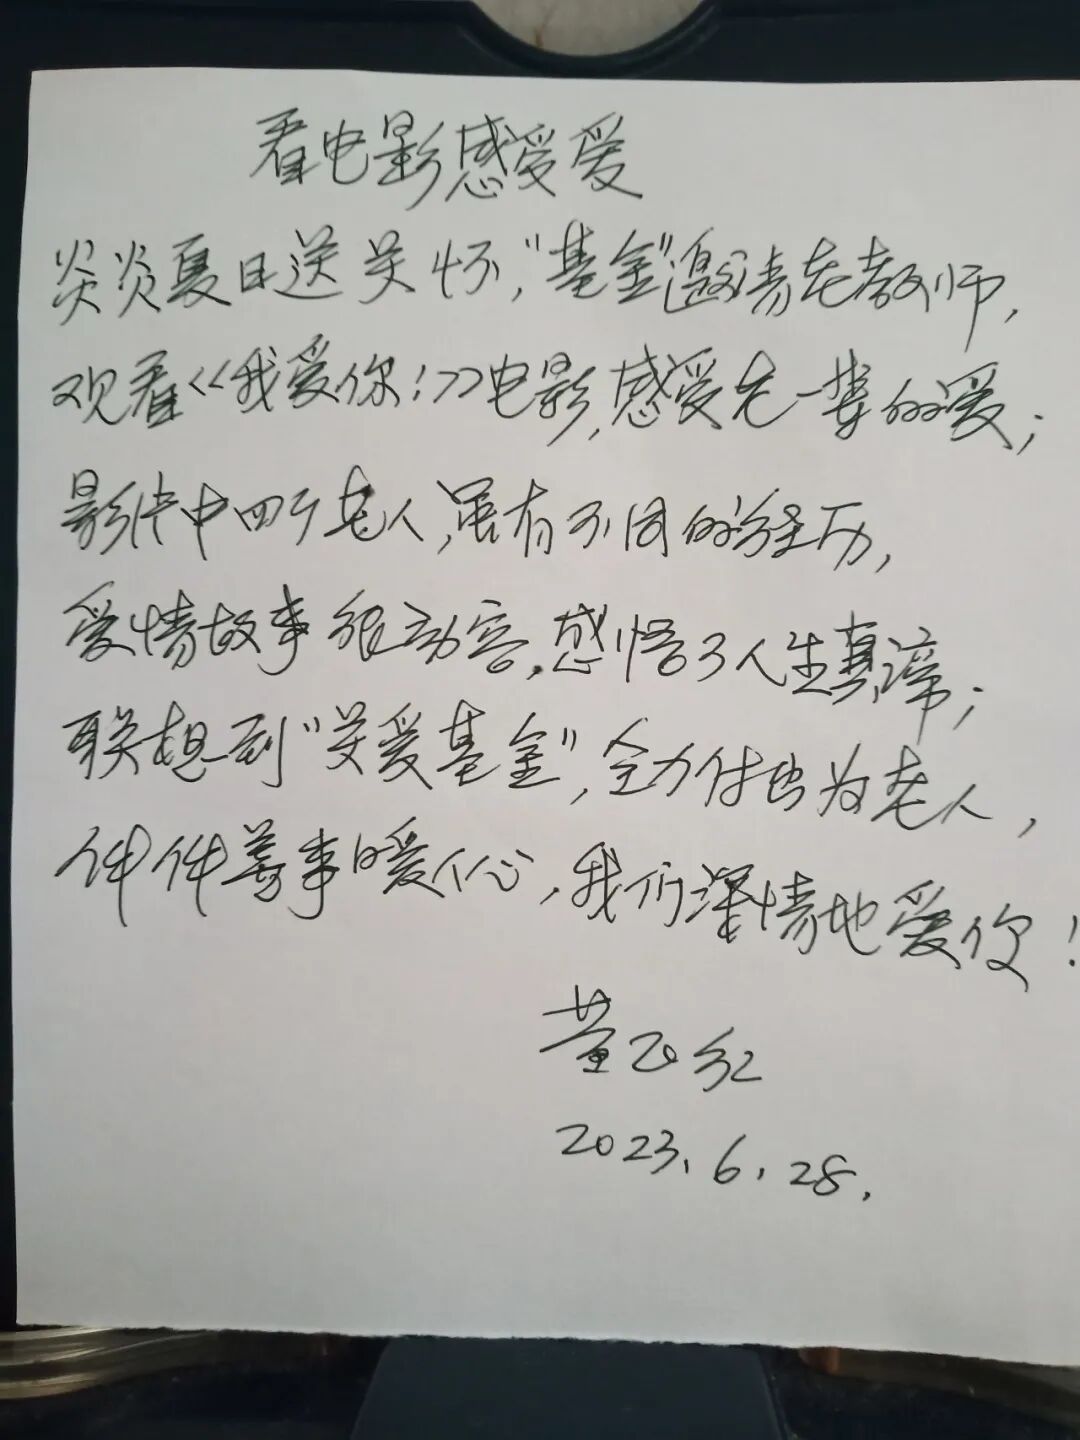 看电影感受爱
炎炎夏日送关怀,“基金”邀请老教师,
观看《我爱你!》电影,感受老一辈的爱;
影片中四个老人,虽有不同的经历,
爱情故事很动容,感悟了人生真谛;
联想到“关爱基金”,全力付出为老人,
件件善事暖人心,我们深情地爱你!
董正红
2023.6.28.